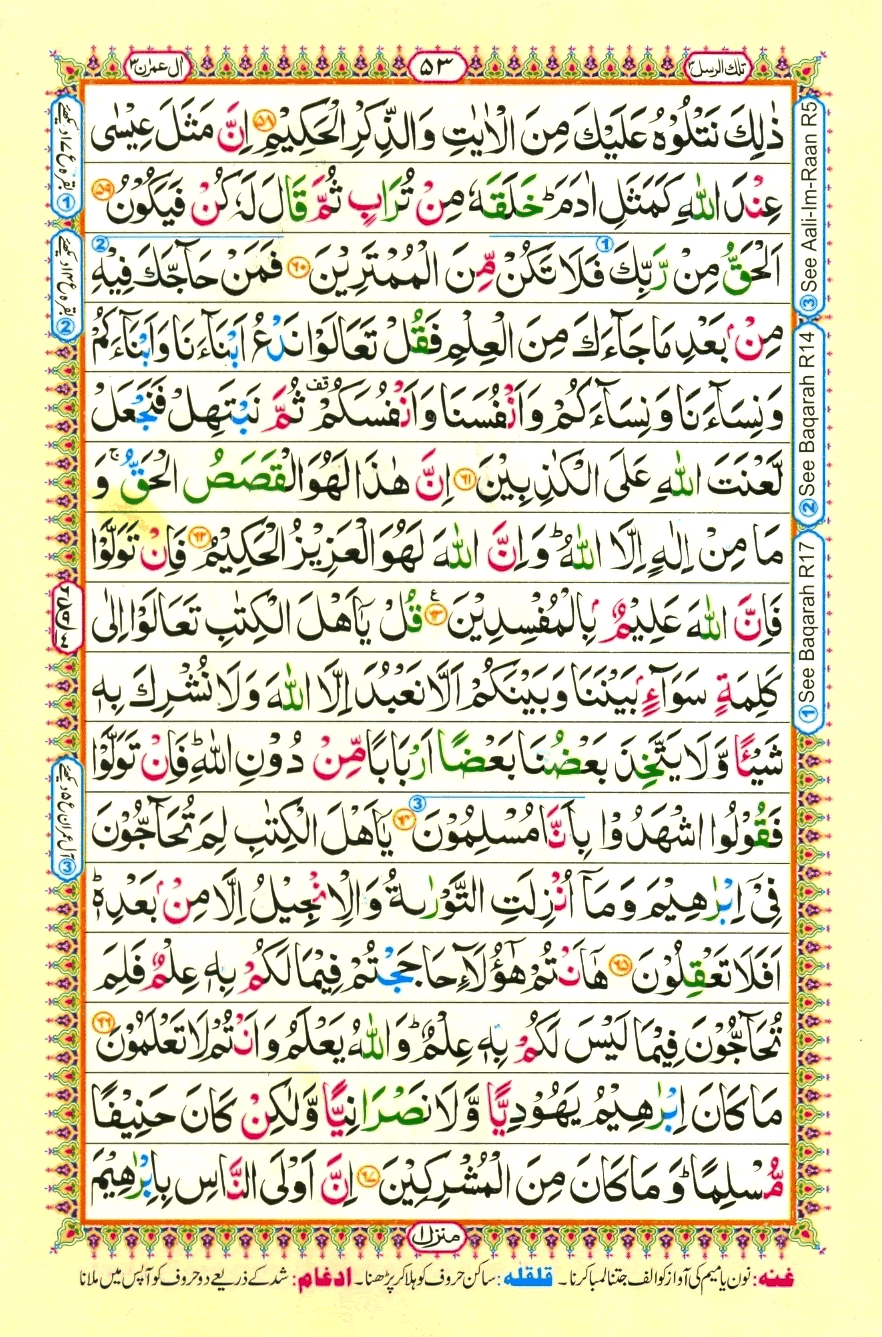 تلك الرسل ٣
٥٣
اٰل عمرٰن ٣
ذٰلِكَ نَتْلُوْهُ عَلَيْكَ مِنَ الْاٰيٰتِ وَالذِّكْرِ الْحَكِيْمِ ﴿۵۸﴾ اِنَّ مَثَلَ عِيْسٰى
عِنْدَ اللّٰهِ كَمَثَلِ اٰدَمَ ؕ خَلَقَهٗ مِنْ تُرَابٍ ثُمَّ قَالَ لَهٗ كُنْ فَيَكُوْنُ ﴿۵۹﴾
اَلْحَقُّ مِنْ رَّبِّكَ فَلَا تَكُنْ مِّنَ الْمُمْتَرِيْنَ ﴿۶۰﴾ فَمَنْ حَآجَّكَ فِيْهِ
مِنْۢ بَعْدِ مَا جَآءَكَ مِنَ الْعِلْمِ فَقُلْ تَعَالَوْا نَدْعُ اَبْنَآءَنَا وَاَبْنَآءَكُمْ
وَنِسَآءَنَا وَنِسَآءَكُمْ وَاَنْفُسَنَا وَاَنْفُسَكُمْ قف ثُمَّ نَبْتَهِلْ فَنَجْعَلْ
لَّعْنَتَ اللّٰهِ عَلَى الْكٰذِبِيْنَ ﴿۶۱﴾ اِنَّ هٰذَا لَهُوَ الْقَصَصُ الْحَقُّ ۚ وَ
مَا مِنْ اِلٰهٍ اِلَّا اللّٰهُ ؕ وَاِنَّ اللّٰهَ لَهُوَ الْعَزِيْزُ الْحَكِيْمُ ﴿۶۲﴾ فَاِنْ تَوَلَّوْا
فَاِنَّ اللّٰهَ عَلِيْمٌۢ بِالْمُفْسِدِيْنَ ﴿۶۳﴾ ع قُلْ يٰٓاَهْلَ الْكِتٰبِ تَعَالَوْا اِلٰى
كَلِمَةٍ سَوَآءٍۢ بَيْنَنَا وَبَيْنَكُمْ اَلَّا نَعْبُدَ اِلَّا اللّٰهَ وَلَا نُشْرِكَ بِهٖ
شَيْـًٔا وَّلَا يَتَّخِذَ بَعْضُنَا بَعْضًا اَرْبَابًا مِّنْ دُوْنِ اللّٰهِ ؕ فَاِنْ تَوَلَّوْا
فَقُوْلُوا اشْهَدُوْا بِاَنَّا مُسْلِمُوْنَ ﴿۶۴﴾ يٰٓاَهْلَ الْكِتٰبِ لِمَ تُحَآجُّوْنَ
فِيْٓ اِبْرٰهِيْمَ وَمَآ اُنْزِلَتِ التَّوْرٰىةُ وَالْاِنْجِيْلُ اِلَّا مِنْۢ بَعْدِهٖ ؕ
اَفَلَا تَعْقِلُوْنَ ﴿۶۵﴾ هٰٓاَنْتُمْ هٰٓؤُلَآءِ حَاجَجْتُمْ فِيْمَا لَكُمْ بِهٖ عِلْمٌ فَلِمَ
تُحَآجُّوْنَ فِيْمَا لَيْسَ لَكُمْ بِهٖ عِلْمٌ ؕ وَاللّٰهُ يَعْلَمُ وَاَنْتُمْ لَا تَعْلَمُوْنَ ﴿۶۶﴾
مَا كَانَ اِبْرٰهِيْمُ يَهُوْدِيًّا وَّلَا نَصْرَانِيًّا وَّلٰكِنْ كَانَ حَنِيْفًا
مُّسْلِمًا ؕ وَمَا كَانَ مِنَ الْمُشْرِكِيْنَ ﴿۶۷﴾ اِنَّ اَوْلَى النَّاسِ بِاِبْرٰهِيْمَ
① See Baqarah R17
② See Baqarah R14
③ See Aali-Im-Raan R5
① بقرہ ع ۱۷ دیکھیے
② بقرہ ع ۱۴ دیکھیے
③ آل عمران ع ۵ دیکھیے
منزل ۱
غنه: نون یا میم کی آواز کو الف جتنا لمبا کرنا۔ قلقله: ساکن حروف کو ہلا کر پڑھنا۔ ادغام: شد کے ذریعے دو حروف کو آپس میں ملانا